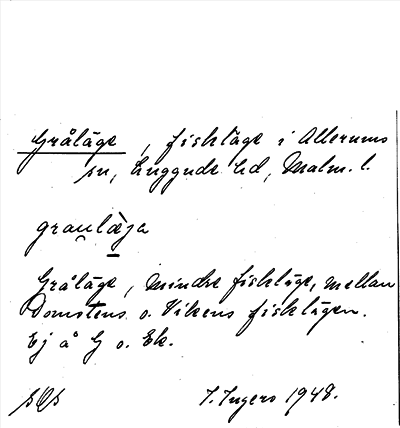 Gråläge, fiskläge i Allerums
sn, Luggude hd, Malm. l.
graulæja
Gråläge, mindre fiskläge, mellan
Domstens o. Vikens fisklägen.
Ej å G o. Ek.
J. Ingers 1948.